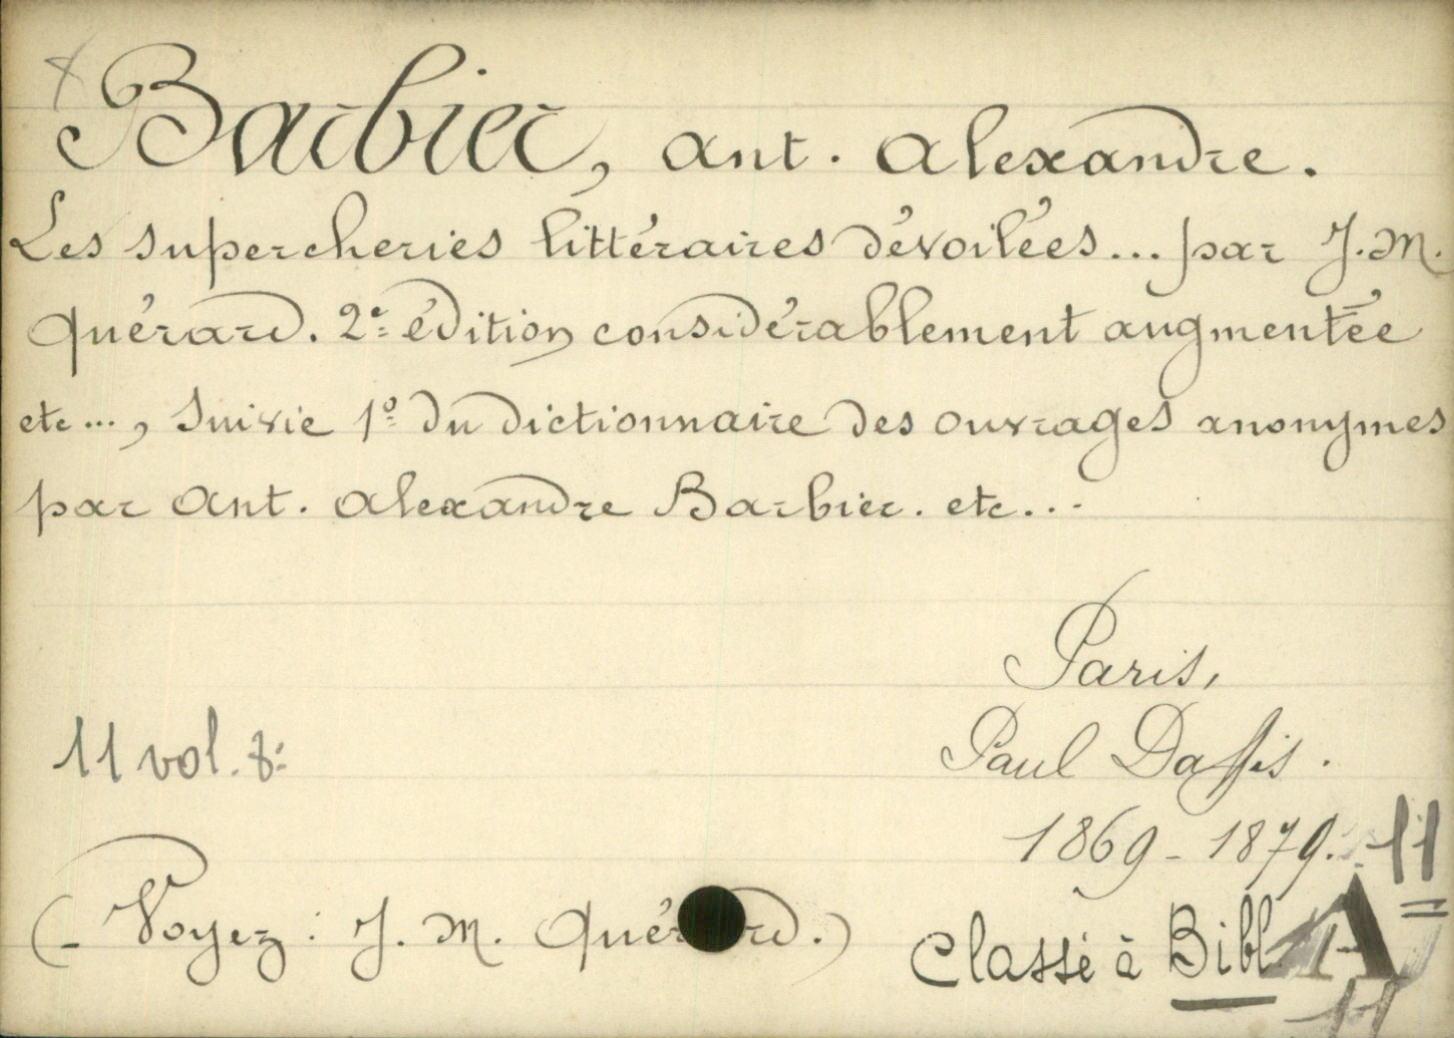 Barbier, Ant. Alexandre.
Les supercheries littéraires dévoilées... par J. M.
Quérard. 2e édition considérablement augmentée
etc..., suivie 1o du dictionnaire des ouvrages anonymes
par Ant. Alexandre Barbier. etc...
Paris,
11 vol. 8o
Paul Daffis.
1869-1879.
11
(- Voyez: J. M. Quérard.)
Classé à Bibl. A
11